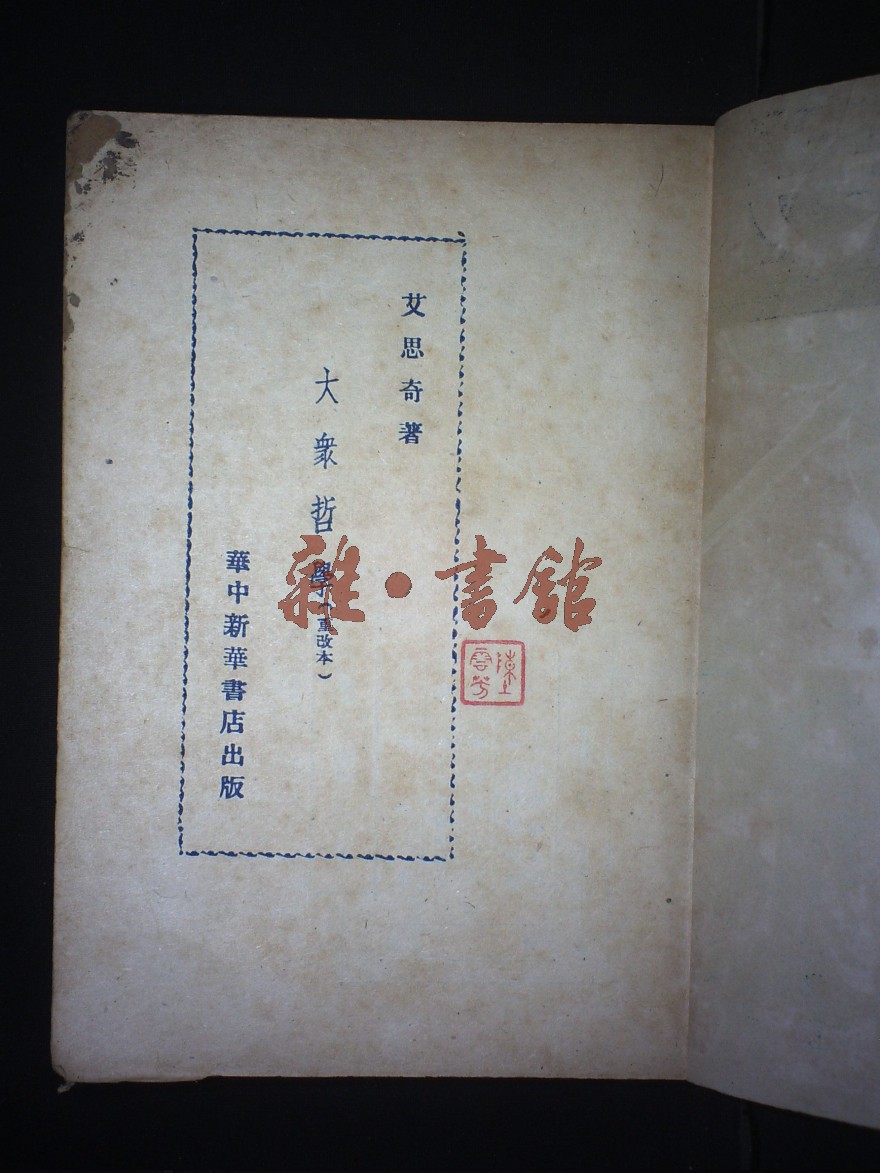 艾思奇著
大衆哲學(重改本)
華中新華書店出版
雜·書館